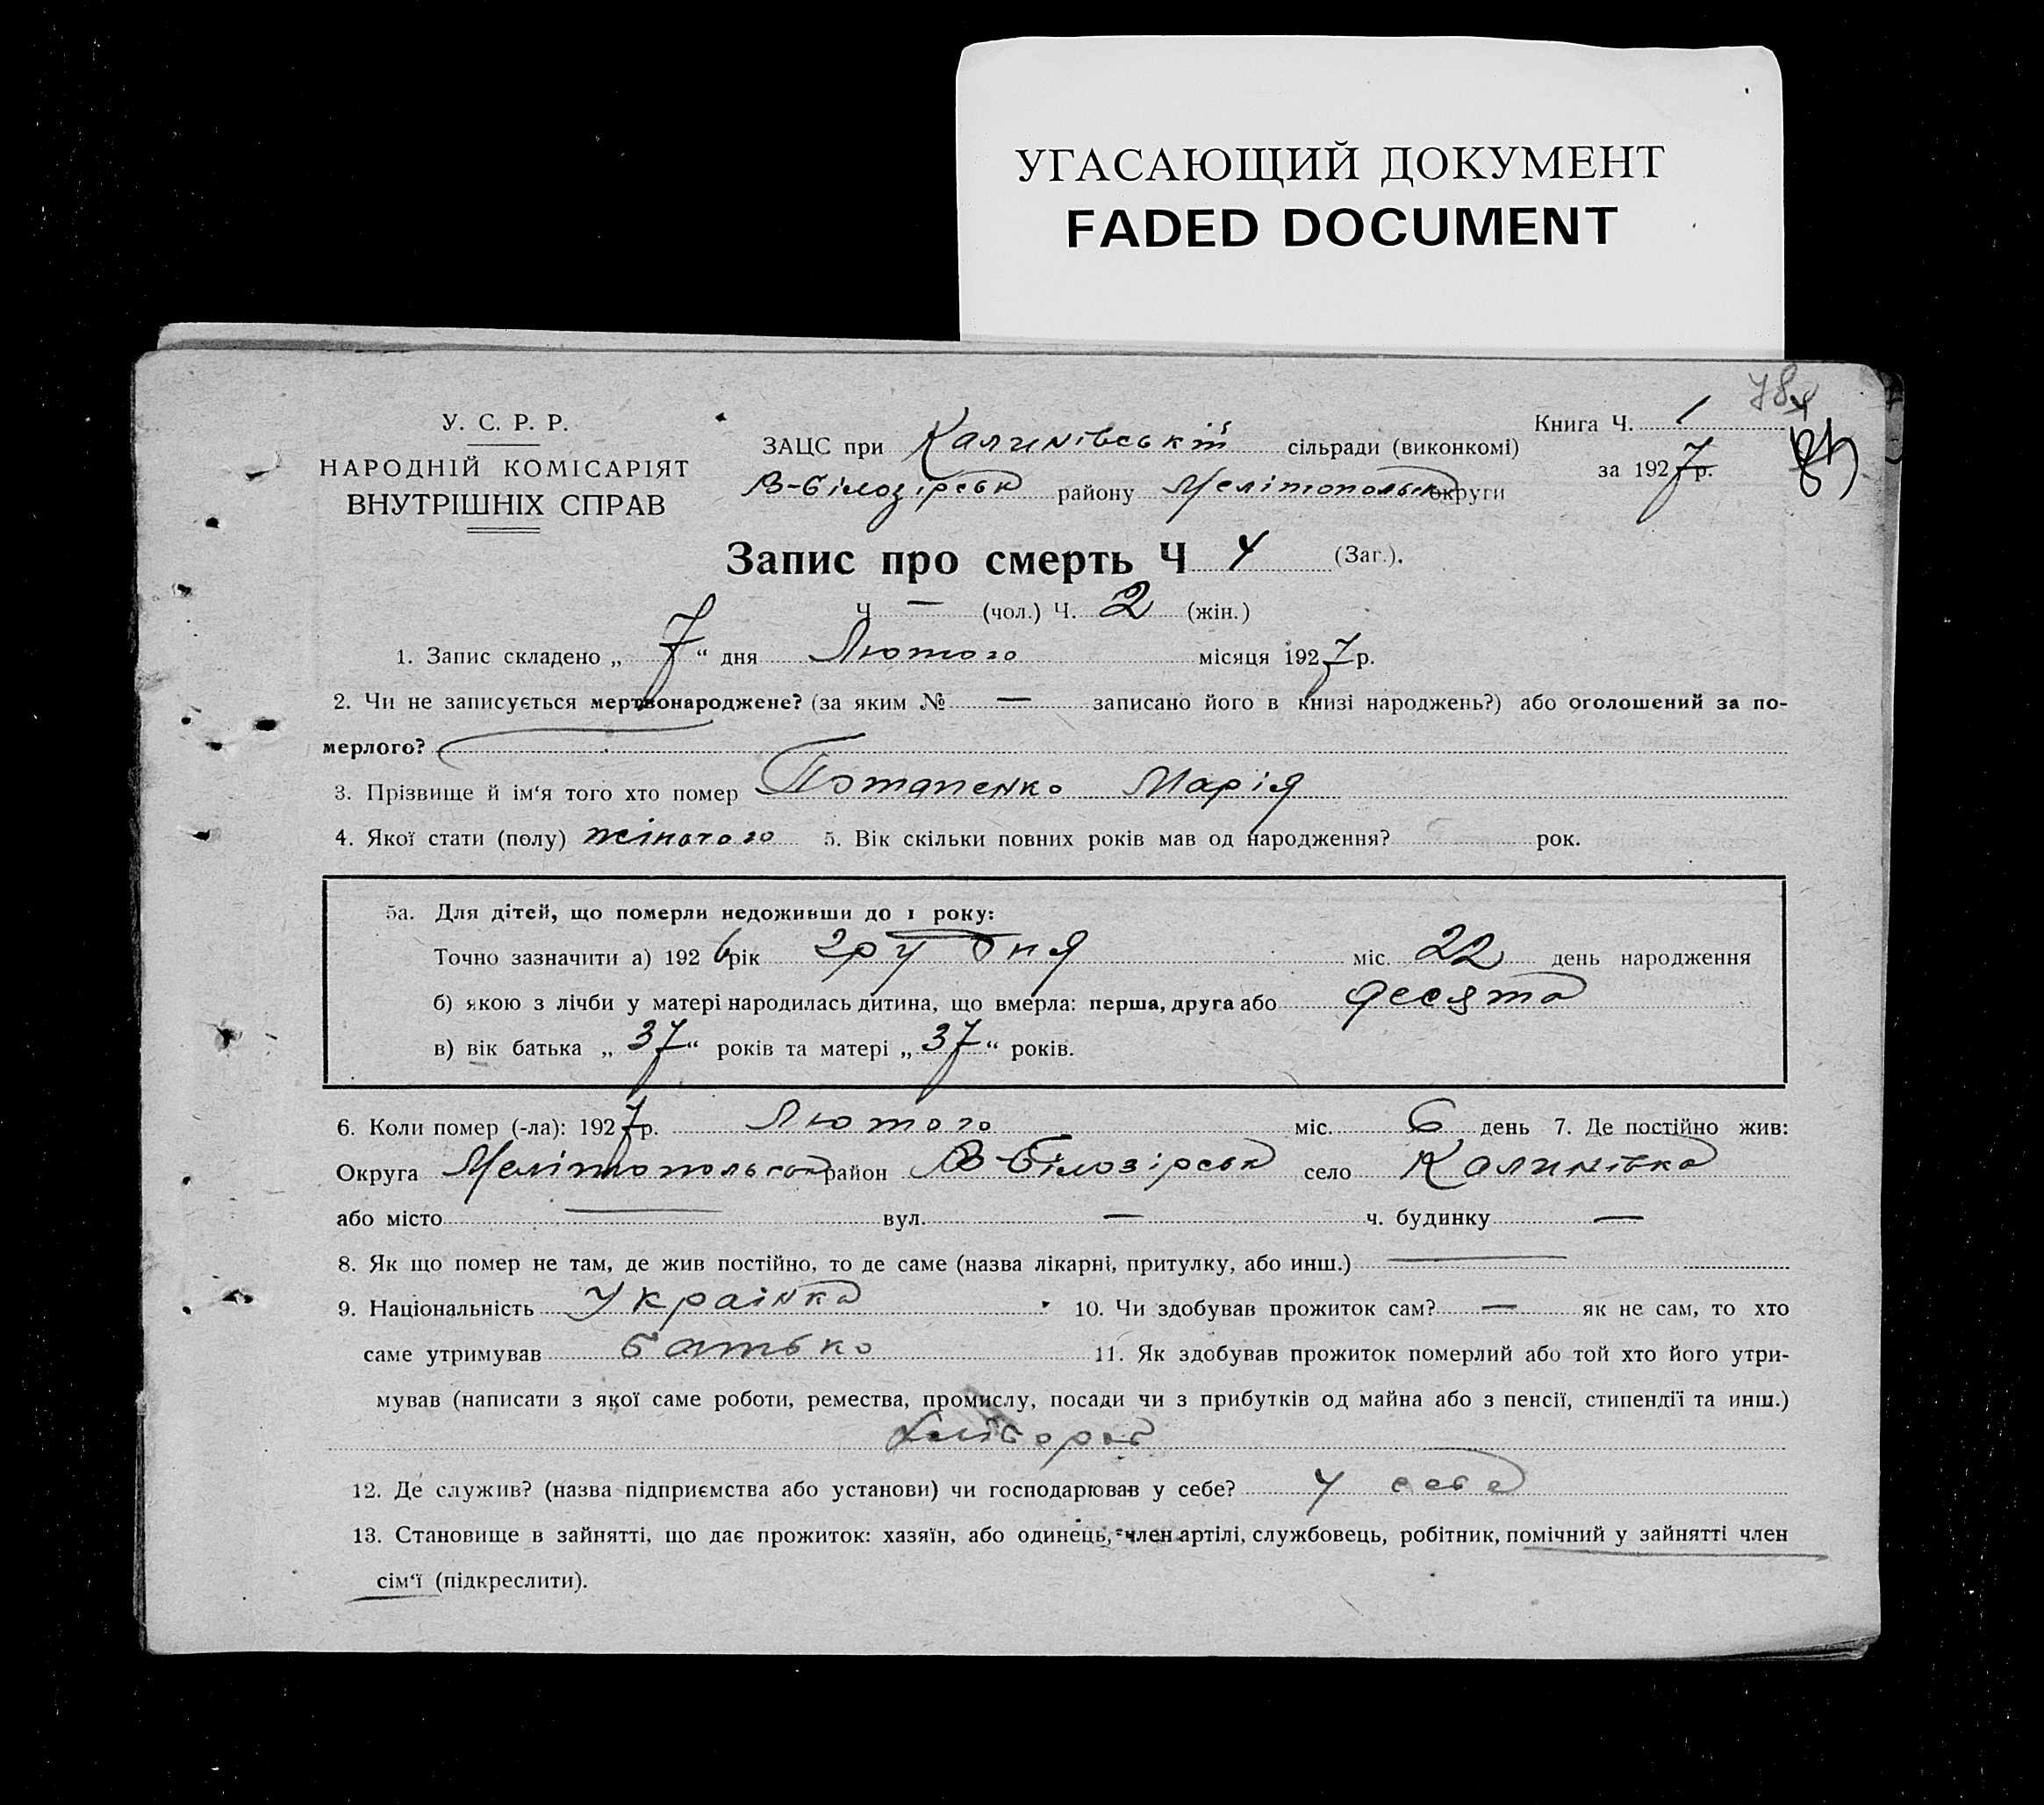 УГАСАЮЩИЙ ДОКУМЕНТ
FADED DOCUMENT
У. С. Р. Р.
НАРОДНІЙ КОМІСАРІЯТ
ВНУТРІШНІХ СПРАВ
ЗАЦС при Калинівській сільради (виконкомі)
В-Білозірськ району Мелітопольськ округи
Книга Ч. 1
за 1927 р.
Запис про смерть Ч 4 (Заг.).
Ч — (чол.) Ч. 2 (жін.)
1. Запис складено „ 7 “ дня Лютого місяця 1927 р.
2. Чи не записується мертвонароджене? (за яким № — записано його в книзі народжень?) або оголошений за по-
мерлого? —
3. Прізвище й ім‘я того хто помер Потапенко Марія
4. Якої стати (полу) жіночого 5. Вік скільки повних років мав од народження? рок.
5а. Для дітей, що померли недоживши до 1 року:
Точно зазначити а) 1926 рік грудня міс. 22 день народження
б) якою з лічби у матері народилась дитина, що вмерла: перша, друга або десята
в) вік батька „ 37 “ років та матері „ 37 “ років.
6. Коли помер (-ла): 1927 р. Лютого міс. 6 день 7. Де постійно жив:
Округа Мелітопольська район В-Білозірськ село Калинівка
або місто — вул. — ч. будинку —
8. Як що помер не там, де жив постійно, то де саме (назва лікарні, притулку, або инш.) —
9. Національність Українка 10. Чи здобував прожиток сам? — як не сам, то хто
саме утримував батько 11. Як здобував прожиток померлий або той хто його утри-
мував (написати з якої саме роботи, ремества, промислу, посади чи з прибутків од майна або з пенсії, стипендії та инш.)
Хлібороб
12. Де служив? (назва підприємства або установи) чи господарював у себе? у себе
13. Становище в зайнятті, що дає прожиток: хазяїн, або одинець, член артілі, службовець, робітник, помічний у зайнятті член
сім‘ї (підкреслити).